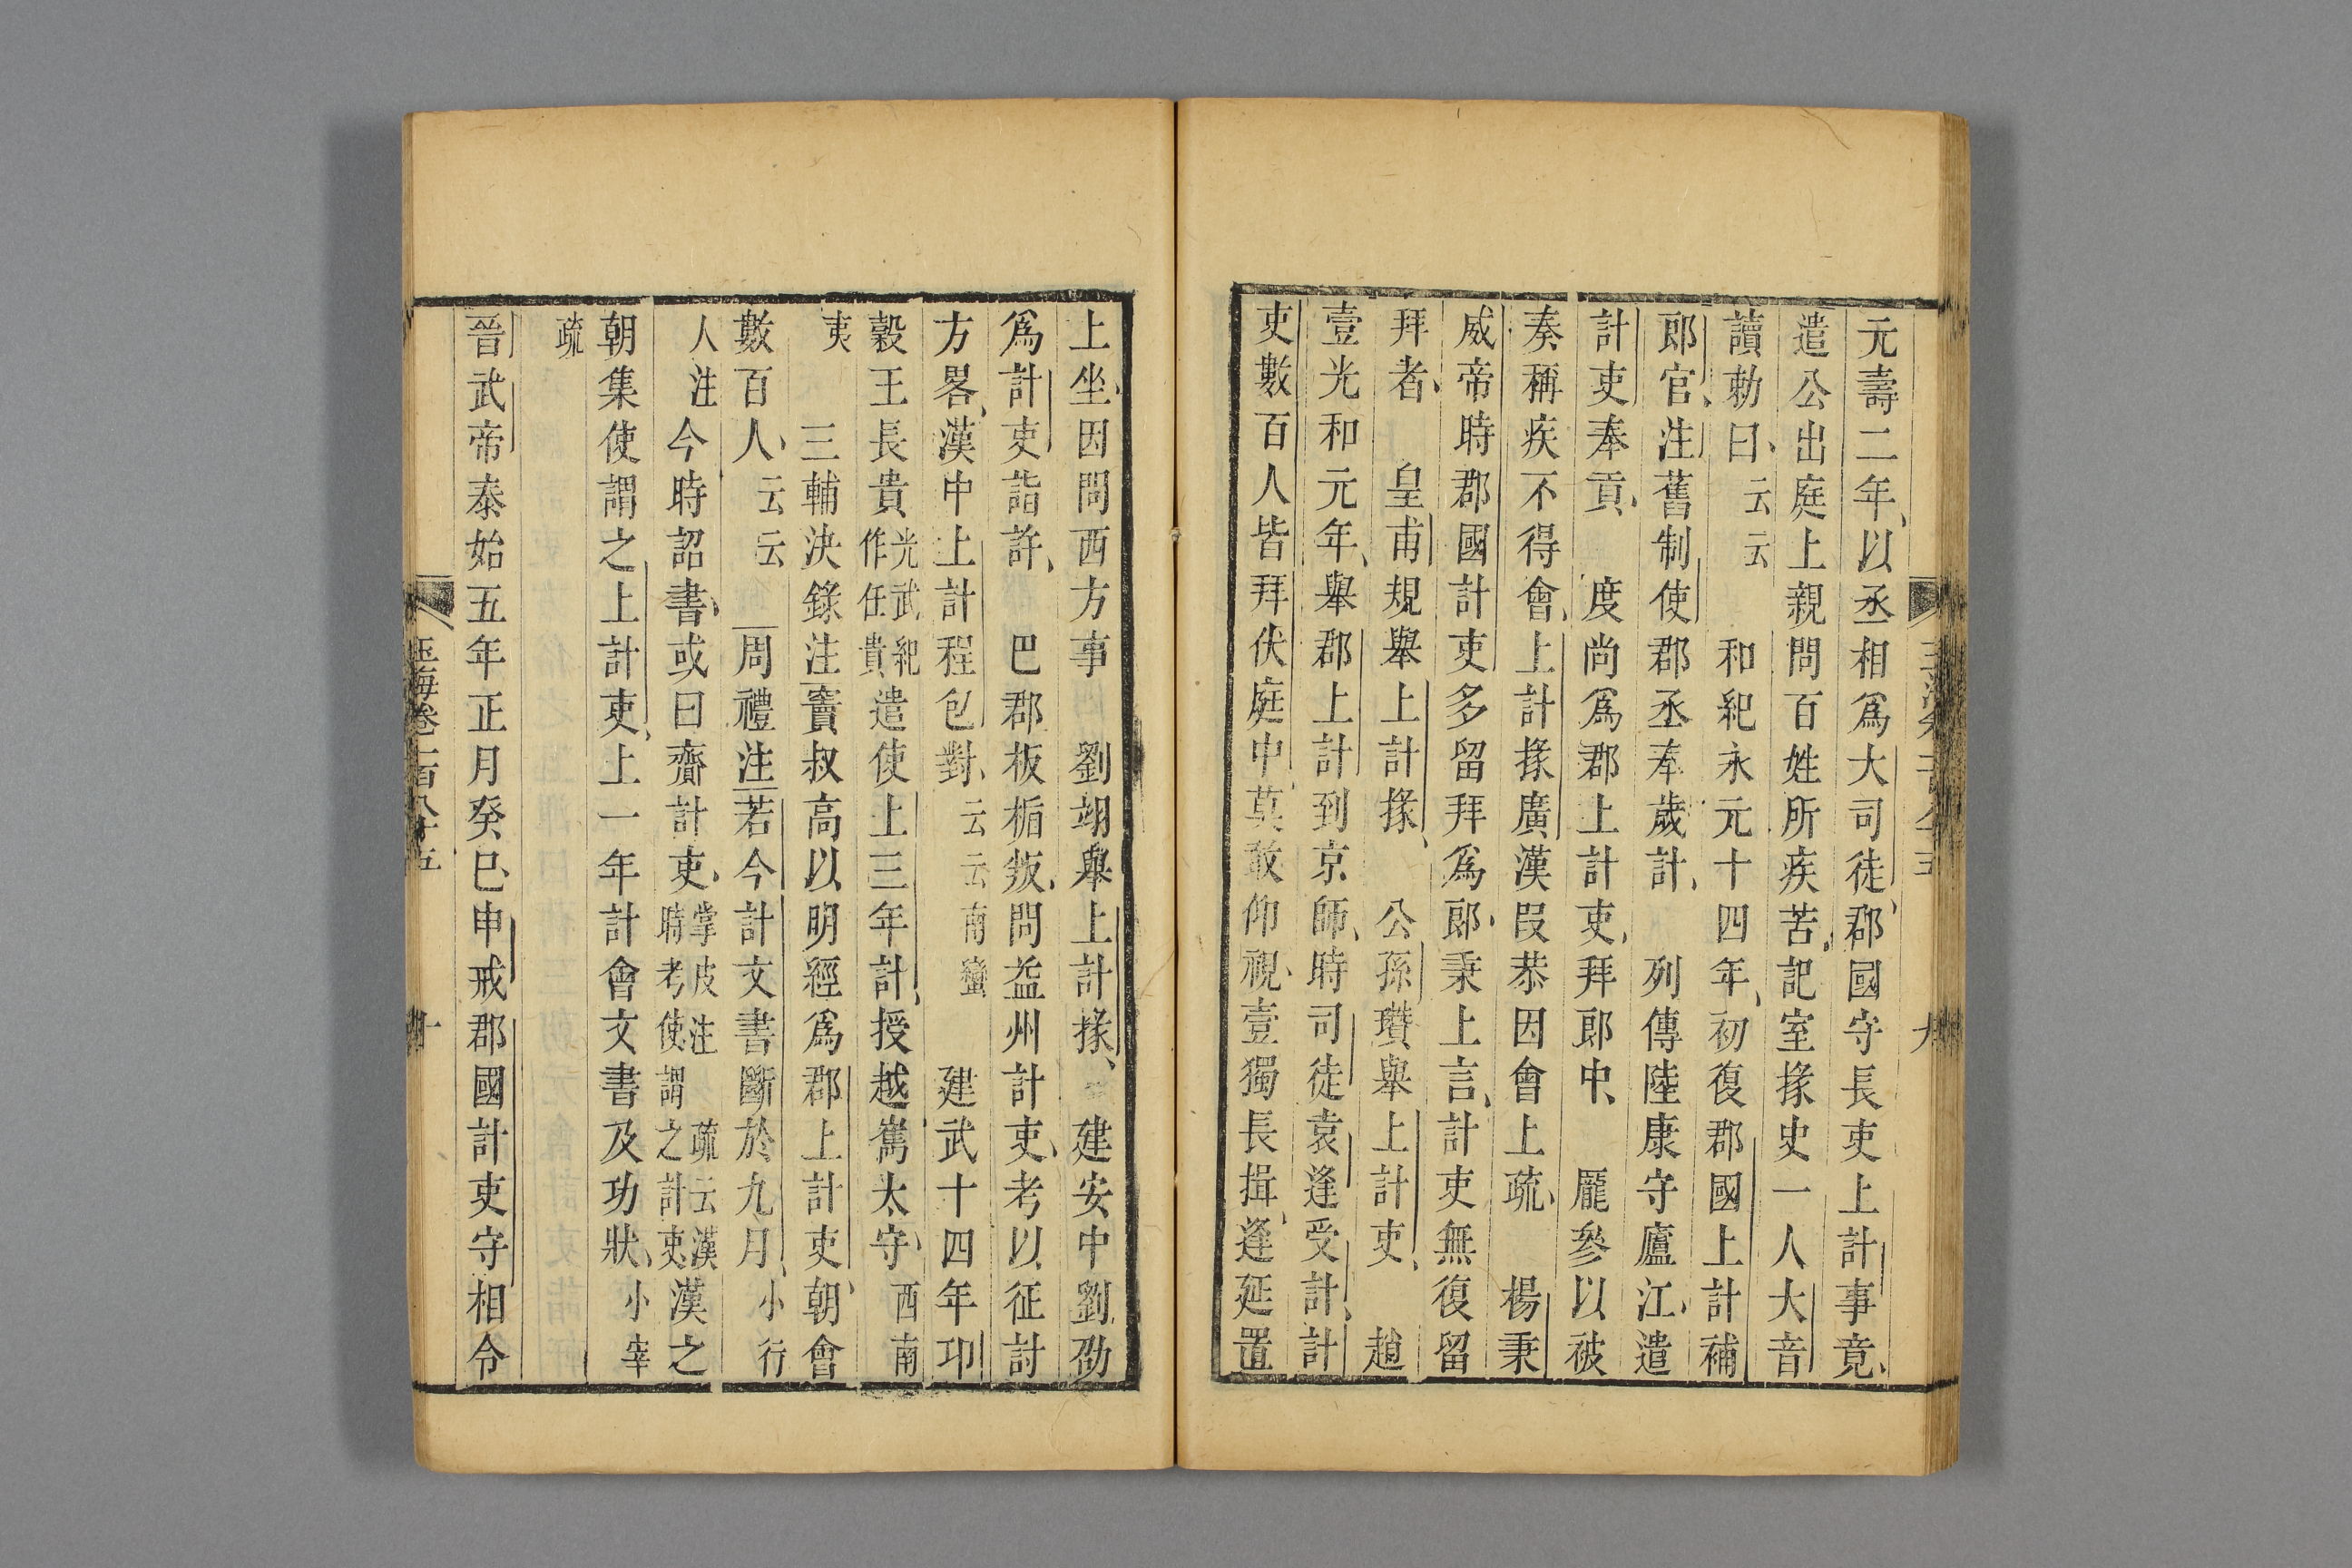 元壽二年以丞相爲大司徒郡國守長吏上計事竟
遣公出庭上親問百姓所疾苦記室掾史一人大音
讀勅曰云云 和紀永元十四年初復郡國上計補
郎官注舊制使郡丞奉歲計 列傳陸康守廬江遣
計吏奉貢 度尚爲郡上計吏拜郎中 龐參以被
奏稱疾不得會上計掾廣漢段恭因會上疏 楊秉
威帝時郡國計吏多留拜爲郎秉上言計吏無復留
拜者 皇甫規舉上計掾 公孫瓚舉上計吏 趙
壹光和元年舉郡上計到京師時司徒袁逢受計計
吏數百人皆拜伏庭中莫敢仰視壹獨長揖逢延置
上坐因問西方事 劉翊舉上計掾 建安中劉劭
爲計吏詣許 巴郡板楯叛問益州計吏考以征討
方畧漢中上計程包對云云南蠻 建武十四年卭
穀王長貴光武紀作任貴遣使上三年計授越嶲太守西南
夷 三輔決錄注竇叔高以明經爲郡上計吏朝會
數百人云云 周禮注若今計文書斷於九月小行
人注今時詔書或曰齎計吏掌皮注疏云漢時考使謂之計吏漢之
朝集使謂之上計吏上一年計會文書及功狀小宰
疏
晉武帝泰始五年正月癸巳申戒郡國計吏守相令
玉海卷一百八十五
十
九